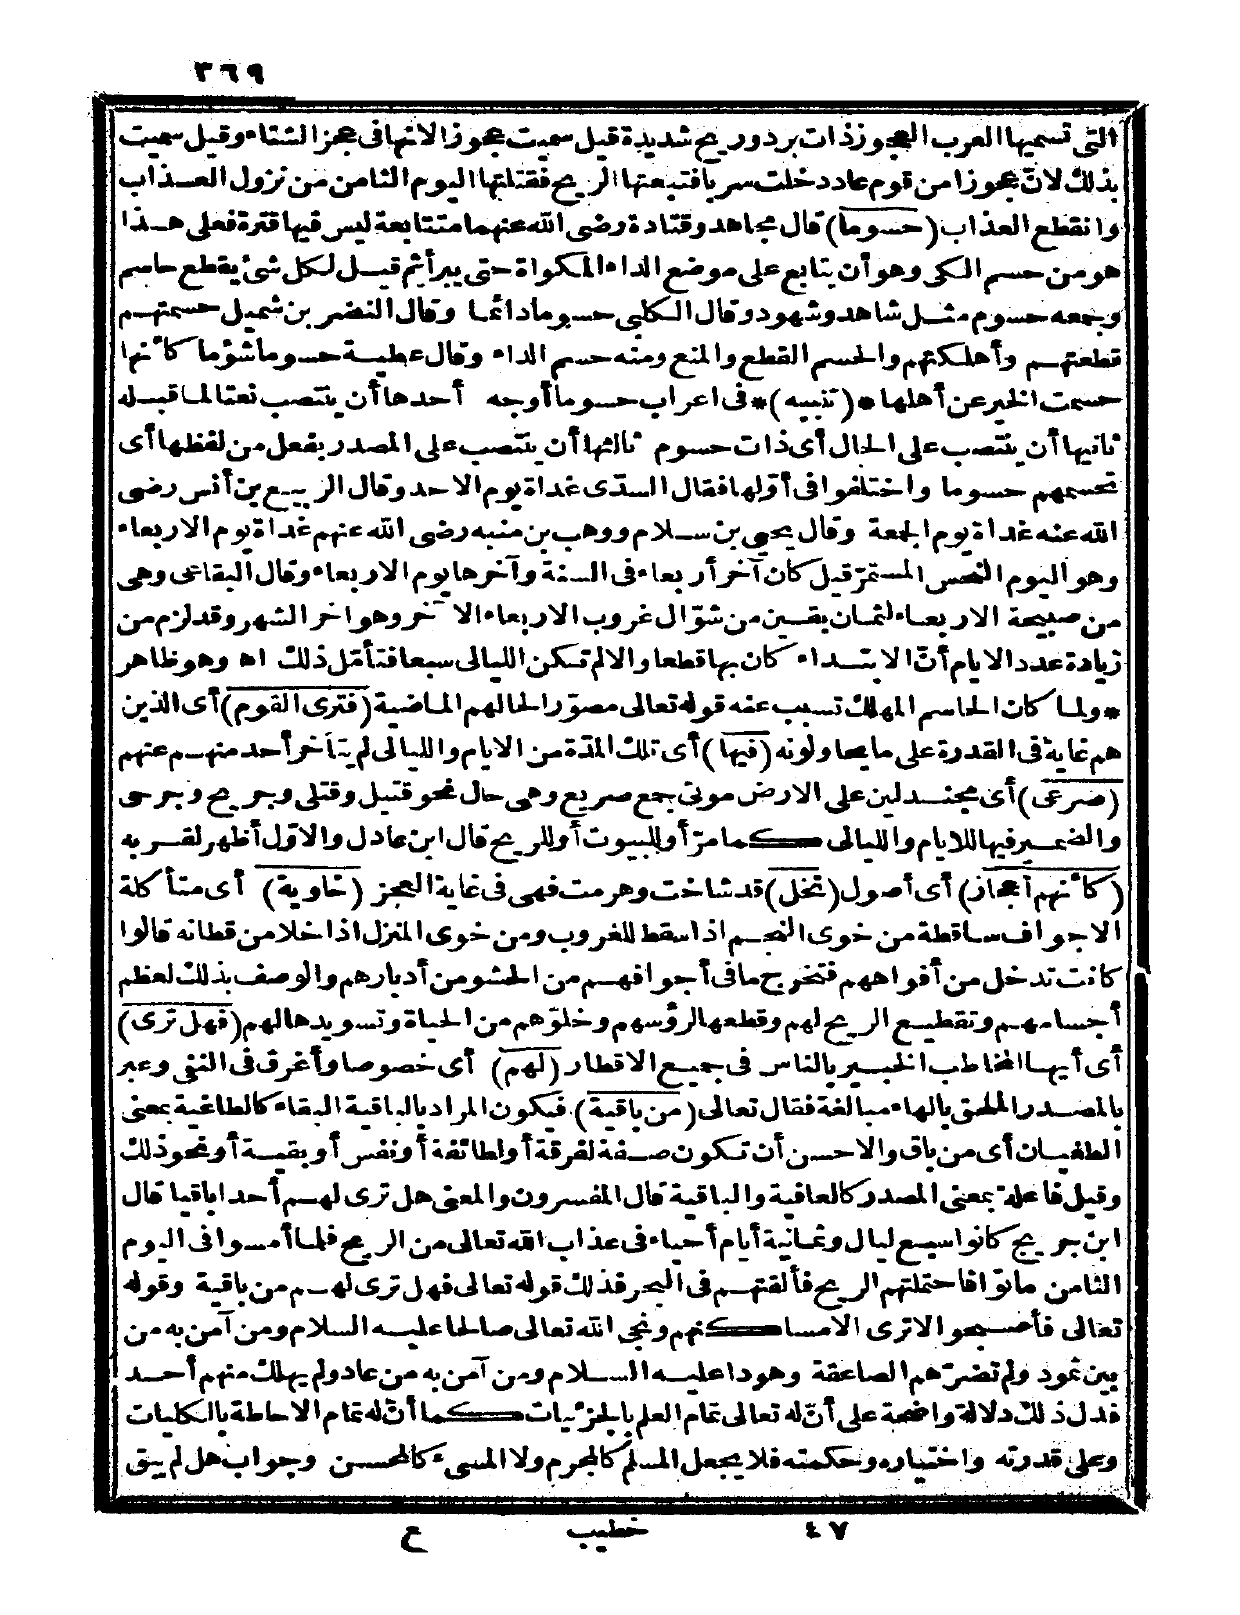 ٣٦٩
التى تسميها العرب العجوز ذات برد وريح شديدة قيل سميت عجوزا لانها فى عجز الشتاء وقيل سميت
بذلك لانّ عجوزا من قوم عاد دخلت سربا فتبعتها الريح فقتلتها اليوم الثامن من نزول العذاب
وانقطع العذاب (حسوما) قال مجاهد وقتادة رضى الله عنهما متتابعة ليس فيها فترة فعلى هذا
هو من حسم الكى وهو أن يتابع على موضع الداء المكواة حتى يبرأ ثم قيل لكل شئ يقطع حاسم
وجمعه حسوم مثل شاهد وشهود وقال الكلبى حسوما دائما وقال النضر بن شميل حسمتهم
قطعتهم وأهلكتهم والحسم القطع والمنع ومنه حسم الداء وقال عطية حسوما شؤما كأنها
حسمت الخير عن أهلها * (تنبيه) * فى اعراب حسوما أوجه أحدها أن ينتصب نعتا لما قبله
ثانيها أن ينتصب على الحال أى ذات حسوم ثالثها أن ينتصب على المصدر بفعل من لفظها أى
تحسمهم حسوما واختلفوا فى أوّلها فقال السدّى غداة يوم الاحد وقال الربيع بن أنس رضى
الله عنه غداة يوم الجمعة وقال يحيى بن سلام ووهب بن منبه رضى الله عنهم غداة يوم الاربعاء
وهو اليوم النحس المستمرّ قيل كان آخر أربعاء فى السنة وآخرها يوم الاربعاء وقال البقاعى وهى
من صبيحة الاربعاء لثمان بقين من شوّال غروب الاربعاء الآخر وهو اخر الشهر وقد لزم من
زيادة عدد الايام أنّ الابتداء كان بها قطعا والا لم تكن الليالى سبعا فتأمّل ذلك اه وهو ظاهر
* ولما كان الحاسم المهلك تسبب عنه قوله تعالى مصوّرا لحالهم الماضية (فترى القوم) أى الذين
هم غاية فى القدرة على ما يحاولونه (فيها) أى تلك المدّة من الايام والليالى لم يتأخر أحد منهم عنهم
(صرعى) أى مجندلين على الارض موتى جمع صريع وهى حال نحو قتيل وقتلى وجريح وجرحى
والضمير فيها للايام والليالى كما مرّ أو للبيوت أو للريح قال ابن عادل والاوّل أظهر لقربه
(كأنهم أعجاز) أى أصول (نخل) قد شاخت وهرمت فهى فى غاية العجز (خاوية) أى متأكلة
الاجواف ساقطة من خوى النجم اذا سقط للغروب ومن خوى المنزل اذا خلا من قطانه قالوا
كانت تدخل من أفواههم فتخرج ما فى أجوافهم من الحشو من أدبارهم والوصف بذلك لعظم
أجسامهم وتقطيع الريح لهم وقطعها لرؤسهم وخلوّهم من الحياة وتسويدها لهم (فهل ترى)
أى أيها المخاطب الخبير بالناس فى جميع الاقطار (لهم) أى خصوصا وأغرق فى النفى وعبر
بالمصدر الملحق بالهاء مبالغة فقال تعالى (من باقية) فيكون المراد بالباقية البقاء كالطاغية بمعنى
الطغيان أى من باق والاحسن أن تكون صفة لفرقة أو لطائفة أو نفس أو بقية أو نحو ذلك
وقيل فاعلة بمعنى المصدر كالعافية والباقية قال المفسرون والمعنى هل ترى لهم أحدا باقيا قال
ابن جريج كانوا سبع ليال وثمانية أيام أحياء فى عذاب الله تعالى من الريح فلما أمسوا فى اليوم
الثامن ماتوا فاحتملتهم الريح فألقتهم فى البحر فذلك قوله تعالى فهل ترى لهم من باقية وقوله
تعالى فأصبحوا لا ترى الا مساكنهم ونجى الله تعالى صالحا عليه السلام ومن آمن به من
بين ثمود ولم تضرّهم الصاعقة وهودا عليه السلام ومن آمن به من عاد ولم يهلك منهم أحد
فدل ذلك دلالة واضحة على أنّ له تعالى تمام العلم بالجزئيات كما أنّ له تمام الاحاطة بالكليات
وعلى قدرته واختياره وحكمته فلا يجعل المسلم كالمجرم ولا المسىء كالمحسن وجواب هل لم يبق
٤٧ خطيب ع